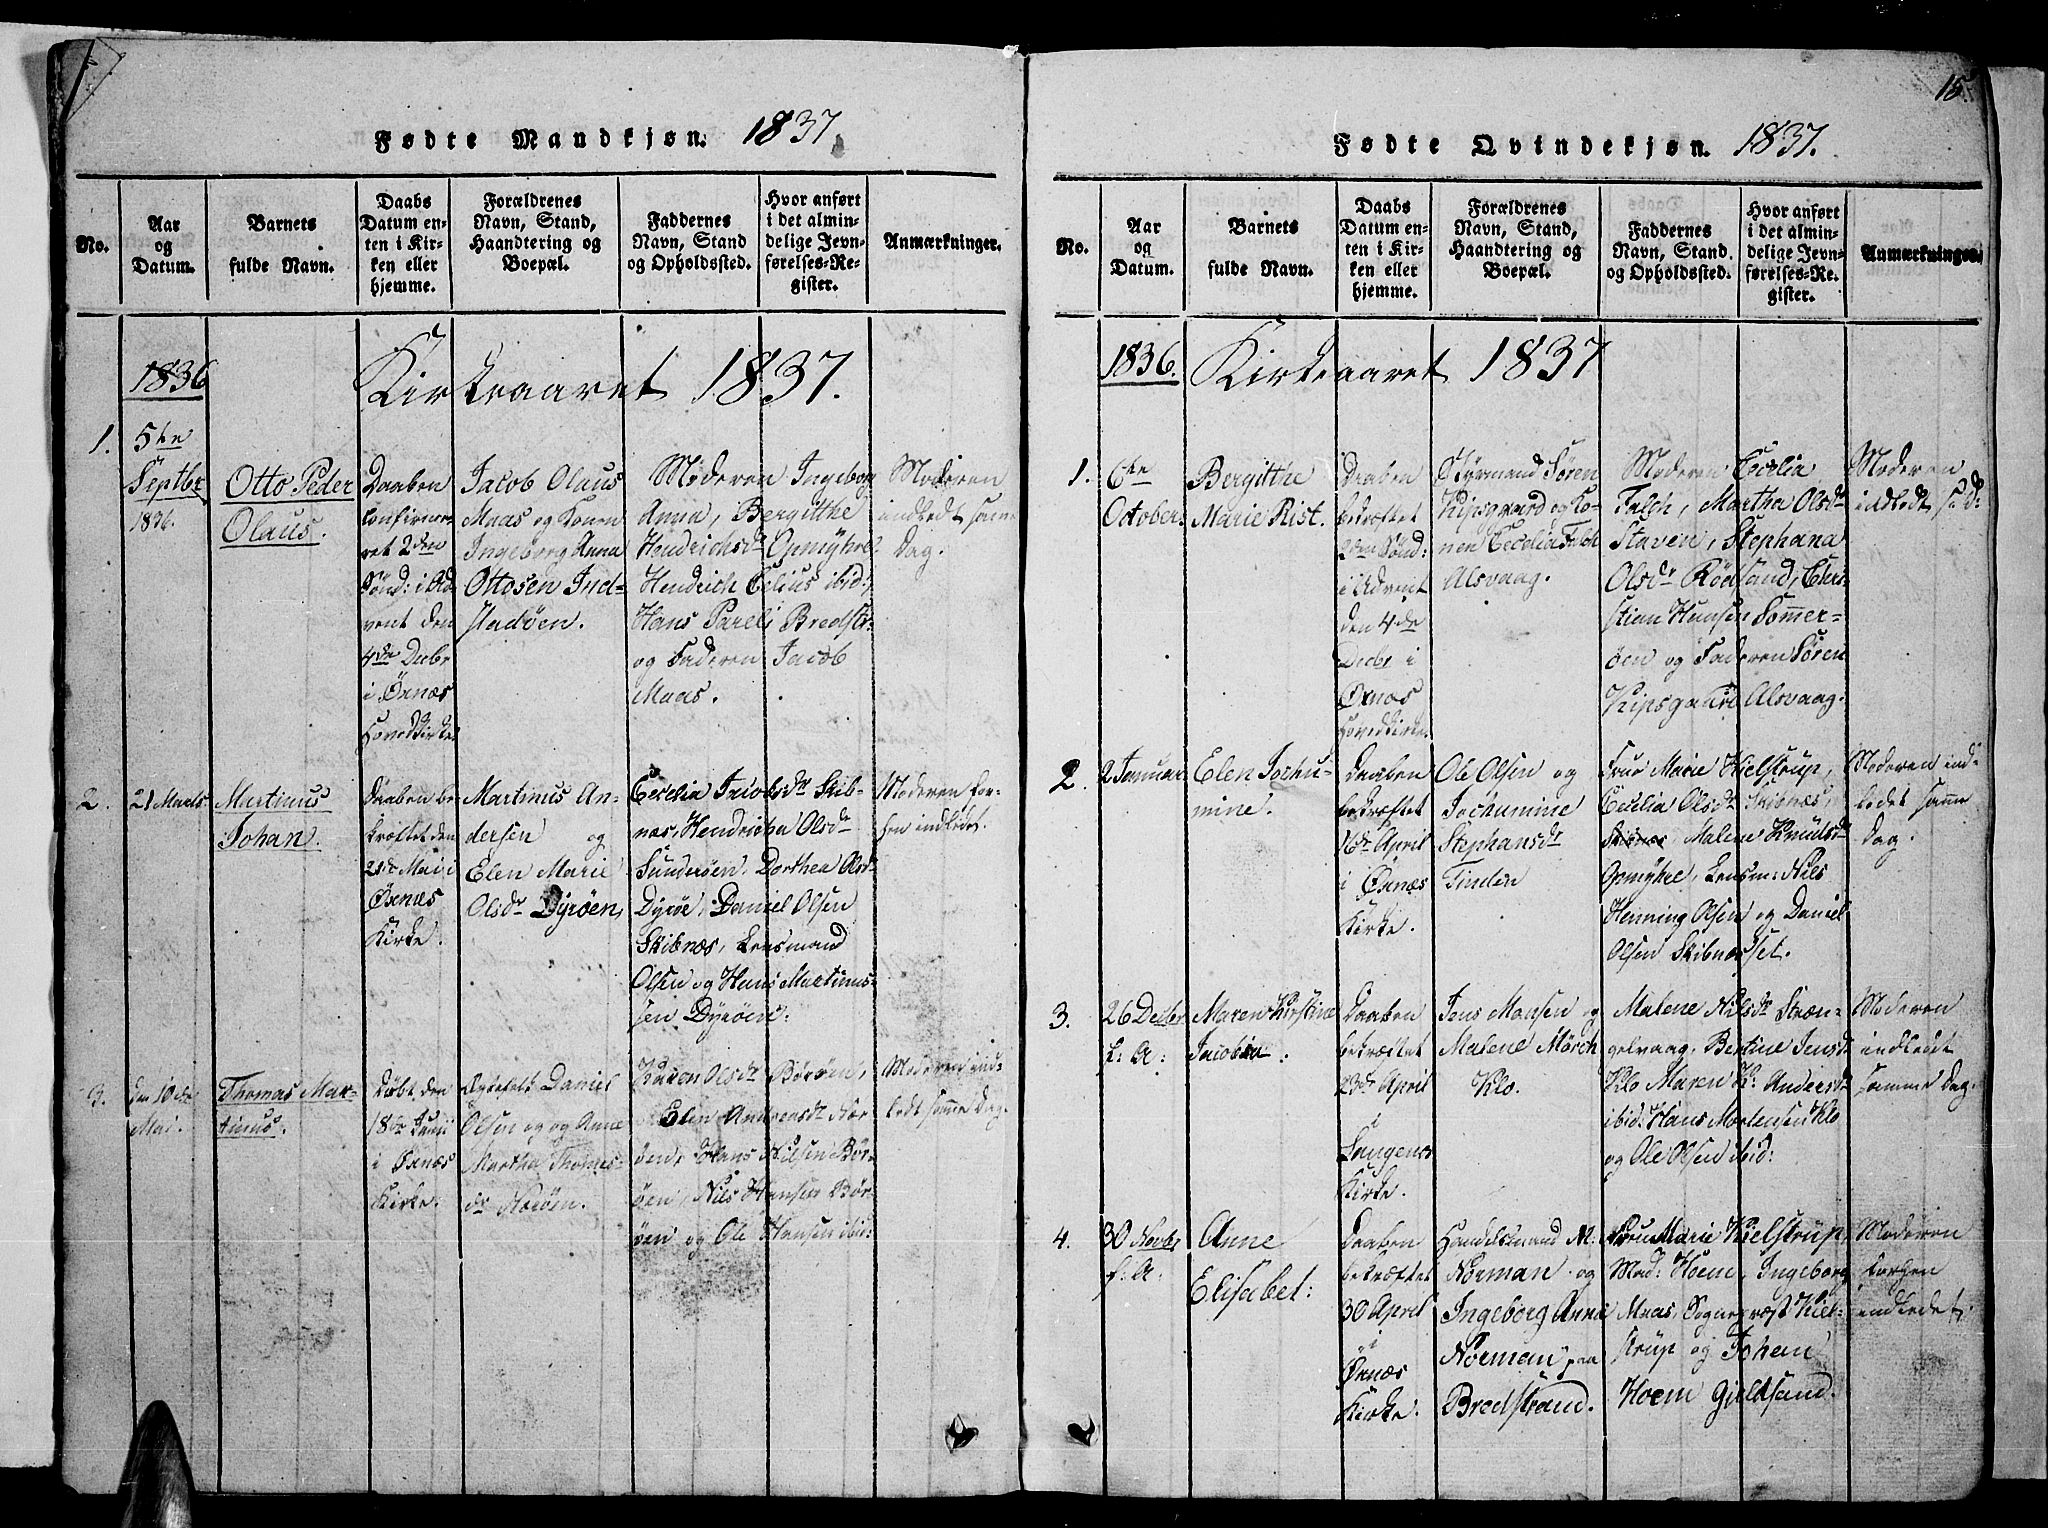 15
Fødte Mandkjøn. 1837.
No.
Aar
og
Datum.
Barnets
fulde Navn.
Daabs
Datum en-
ten i Kir-
ken eller
hjemme.
Forældrenes
Navn, Stand,
Haandtering og
Boepæl.
Faddernes
Navn, Stand
og Opholdssted.
Hvor anført
i det almin-
delige Jevn-
førelses-Re-
gister.
Anmærkninger.
1836
Kirkeaaret 1837.
1.
5te
Septbr
1836.
Otto Peder
Olaus.
Daaben
confirme-
ret 2den
Sønd: i Ad
vent den
4de Decbr
i Øxnæs
Hovedkirke
Jacob Olaus
Maas og Konen
Ingeborg Anna
Ottosen Ind-
stadøen.
Moderen Ingeborg
Anna, Bergitthe
Hendrichsdr Opmyhre
Hendrich Celius ibid:,
Hans Pareli Bredstr:
og Faderen Jacob
Maas.
Moderen
indledt samme
Dag.
2.
21 Marts
Martinus
Johan.
Daaben be-
kræftet den
21de Mai i
Øxnæs
Kirke.
Martinus An-
dersen og
Elen Marie
Olsdr Dyrøen,
Cecelia Jacobsdr Skib-
næs, Hendricha Olsdr
Sunderøen, Dorthea Olsdr
Dyrøe, Daniel Olsen
Skibnæs, Lensmand
Olsen og Hans Martinus-
sen Dyrøen.
Moderen for-
hen indledet.
3.
den 10de
Mai.
Thomas Mar-
tinus.
Døbt den
18de Junii
i Øxnæs
Kirke.
Daniel
Olsen og og Anne
Martha Thomes-
dr
Karen Olsdr Børøen,
Elen Andreasdr
øen, Hans Nilsen Bør-
øen, Nils Hansen Bør-
øen og Ole Hansen ibid:
Moderen ind-
ledt samme Dag.
Fødte Qvindekjøn. 1837.
No.
Aar
og
Datum.
Barnets
fulde Navn.
Daabs
Datum en-
ten i Kir-
ken eller
hjemme.
Forældrenes
Navn, Stand,
Haandtering og
Boepæl.
Faddernes
Navn, Stand
og Opholdssted.
Hvor anført
i det almin-
delige Jevn-
førelses-Re-
gister.
Anmærkninger.
1836.
Kirkeaaret 1837
1.
6te
October.
Bergitthe
Marie Rist.
Daaben
bekræftet
2den Sønd:
i Advent
den 4de
Decbr i
Øxnæs
Hovedkirke.
Styrmand Søren
Kipsgaard og Ko-
nen Cecelia Falch
Alsvaag.
Moderen Cecelia
Falch, Martha Olsdr
Staven, Stephana
Olsdr Rødsand, Chri-
stian Hansen Sommer-
øen og Faderen Søren
Kipsgaard Alsvaag.
Moderen
indledt s: D:
2.
2 Januar
Elen Jochu-
mine.
Daaben
bekræftet
16de April
i Øxnæs
Kirke.
Ole Olsen og
Jochumine
Stephansdr
Tinden
Frue Marie Kielstrup,
Cecelia Olsdr Skibnæs,
Malene Knudsdr
Opmyhre, Lensm: Nils
Henning Olsen og Daniel
Olsen Skibnæsset.
Moderen ind-
ledet samme
Dag.
3.
26 Decbr
f: A:
Maren Kirstine
Jacobea.
Daaben
bekræftet
23de April
i
Langenes
Kirke.
Jens Monsen og
Malene Mørch
Klo.
Malene Nilsdr Stren-
gelvaag, Bertine Jensdr
Klo Maren K: Andersdr
ibid: Hans Mortensen Klo
og Ole Olsen ibid:
Moderen
indledt
samme Dag.
4.
30 Novbr
f: A:
Anne
Elisabet:
Daaben
bekræftet
30 April
i
Øxnæs
Kirke.
Handelsmand M:
Norman og
Ingeborg Anna
Norman paa
Bredstrand.
Frue Marie Kielstrup,
Mad: Hoem, Ingeborg
Maas, Sognepræst Kiel-
strup og Johan
Hoem Gieldsand.
Moderen
forhen
indledet.